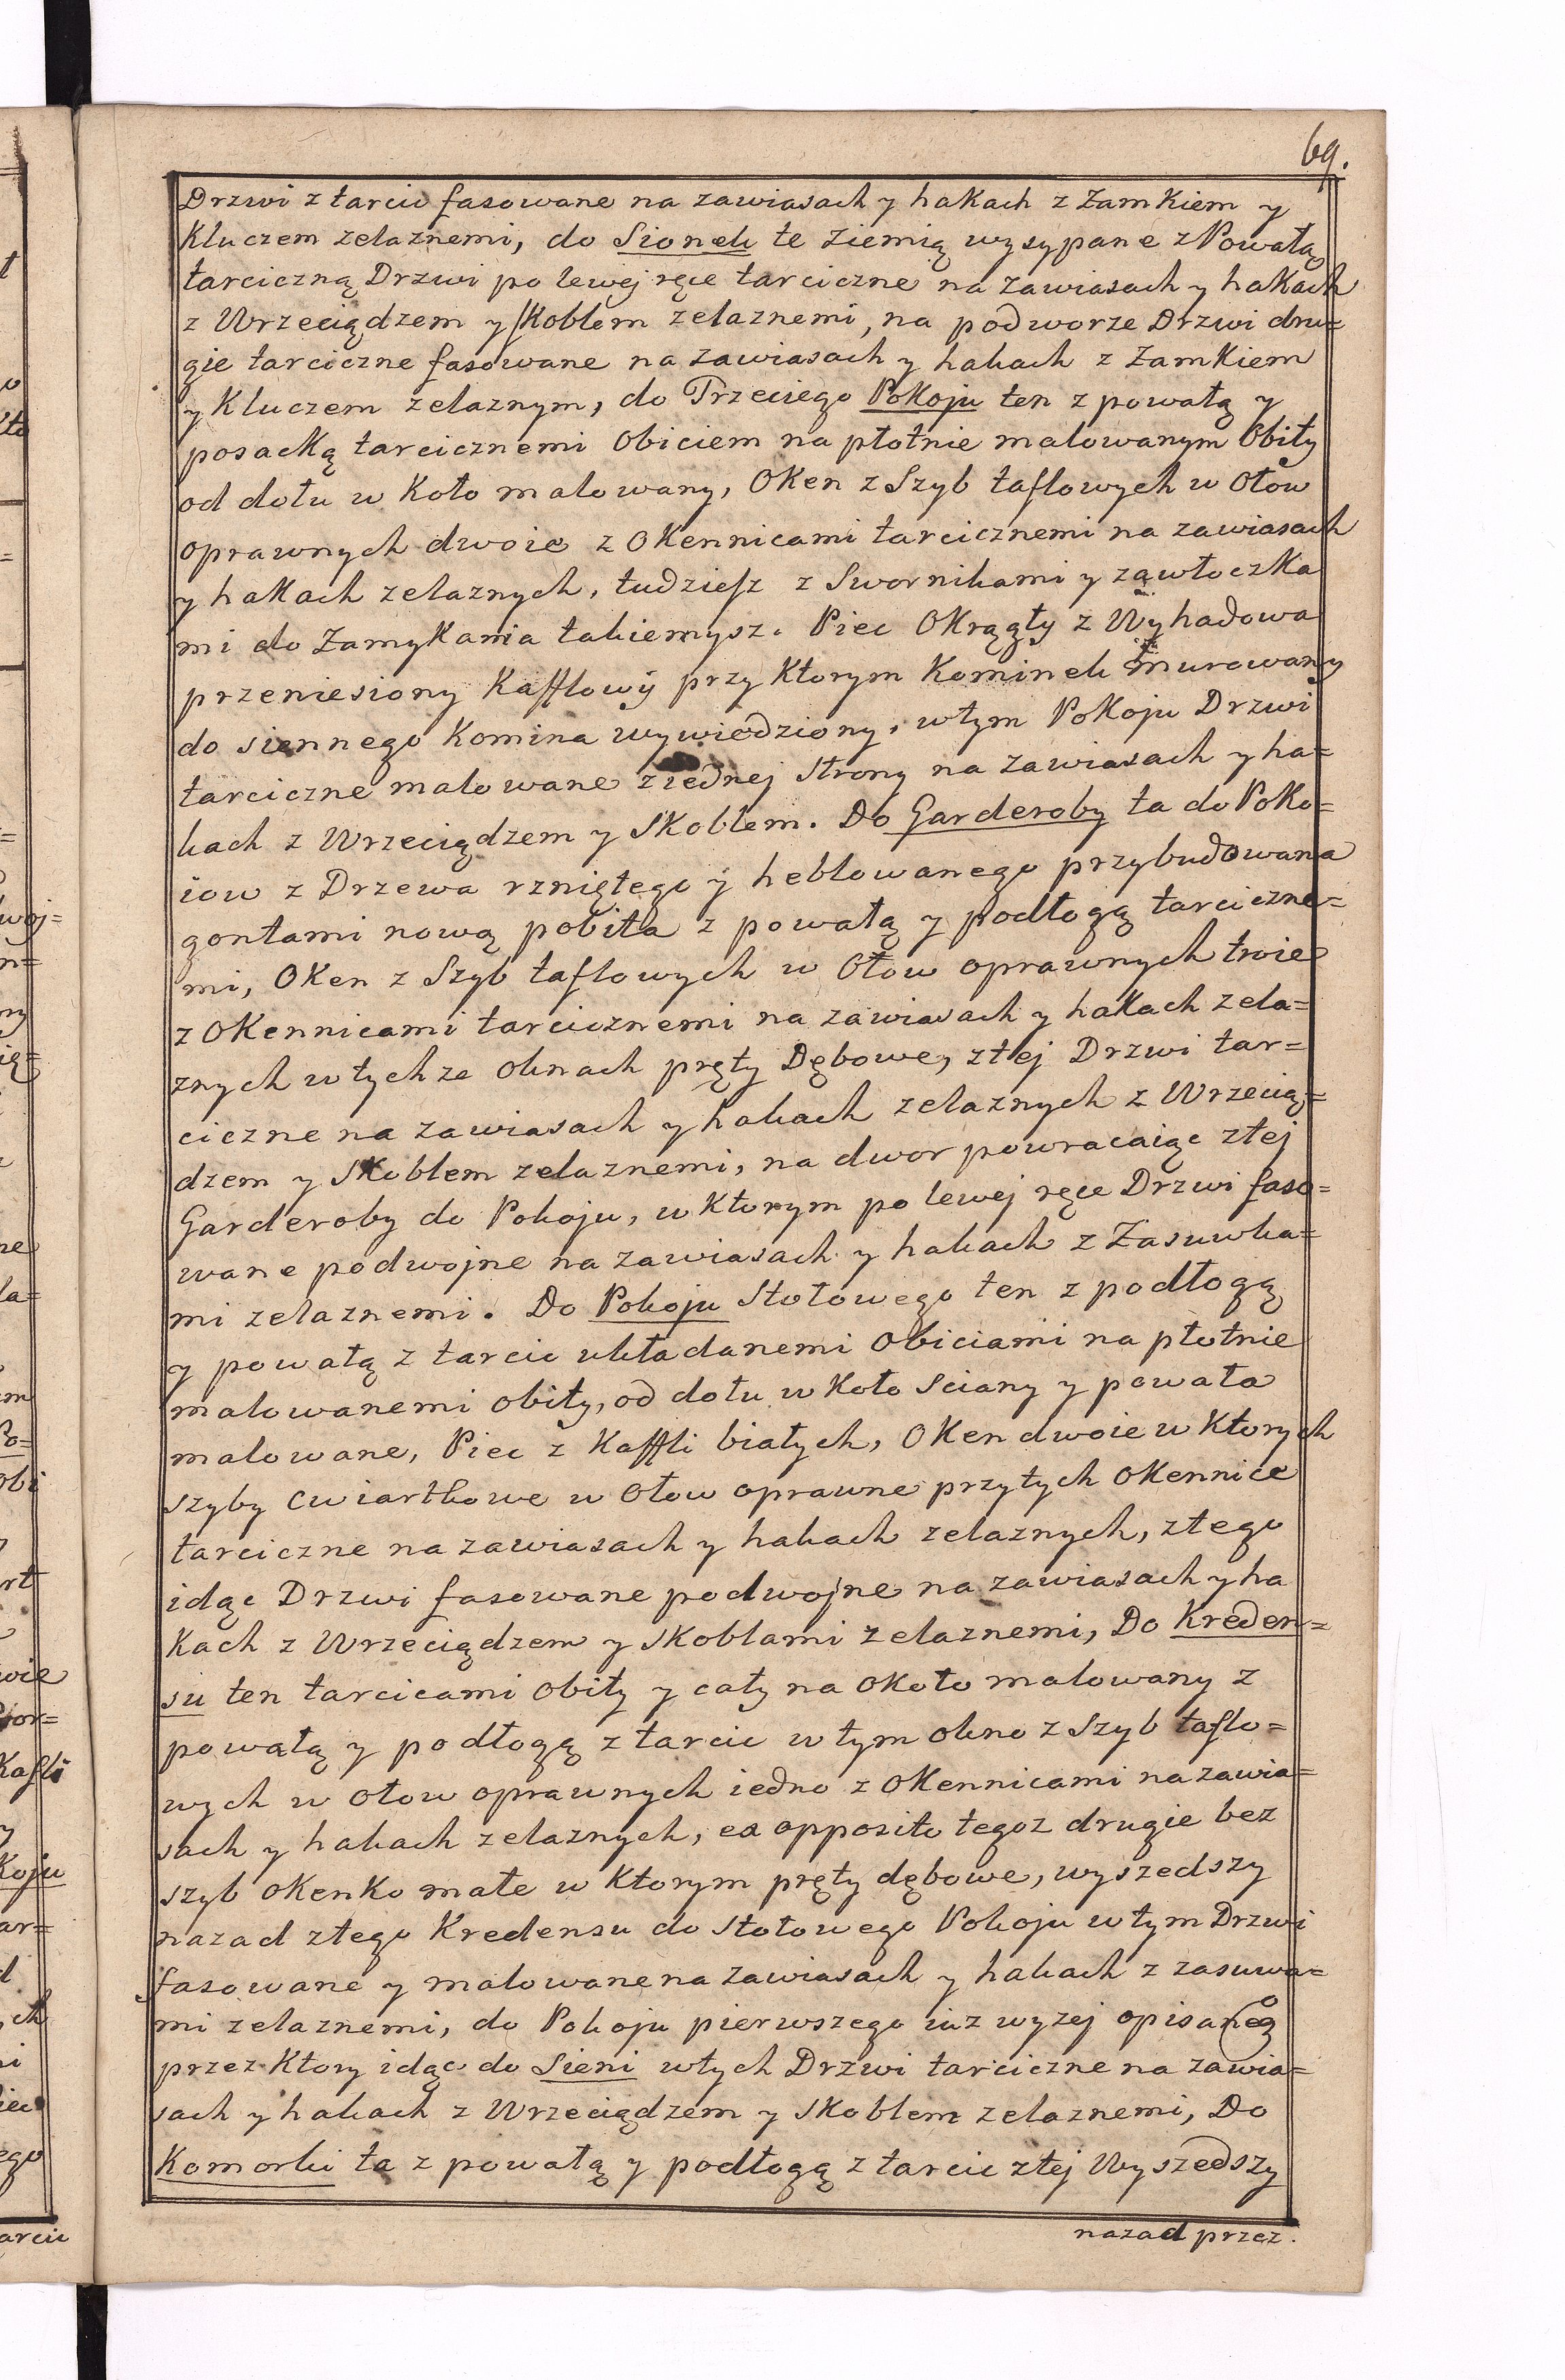 69.
Drzwi z tarcic fasowane na zawiasach y hakach z Zamkiem y
Kluczem zelaznemi, do Sionek te Ziemią wysypane z Powałą
tarciczną Drzwi po lewej ręce tarciczne na zawiasach y hakach
z Wrzeciądzem y Skoblem zelaznemi, na podworze Drzwi dru=
gie tarciczne fasowane na zawiasach y hakach z Zamkiem
y Kluczem zelaznym, do Trzeciego Pokoju ten z powałą y
posacką tarcicznemi Obiciem na płotnie malowanym Obity
od dołu w Koło malowany, Oken z Szyb taflowych w Ołow
oprawnych dwoie z Okennicami tarcicznemi na zawiasach
y hakach zelaznych, tudziesz z Swornikami y zawłoczka
mi do Zamykania takiemysz. Piec Okrągły z Wyhadowa
przeniesiony Kafflowy przy Ktorym Kominek murowany
do siennego Komina wywiedziony, w tym Pokoju Drzwi
tarciczne malowane z iednej Strony na zawiasach y ha=
kach z Wrzeciądzem y Skoblem. Do Garderoby ta do Poko=
iow z Drzewa rzniętego y heblowanego przybudowana
gontami nową pobita z powałą y podłogą tarciczne=
mi, Oken z Szyb taflowych w Ołow oprawnych troie
z Okennicami tarcicznemi na zawiasach y hakach zela=
znych w tychze oknach pręty Dębowe, z tej Drzwi tar=
ciczne na zawiasach y hakach zelaznych z Wrzecią=
dzem y Skoblem zelaznemi, na dwor powracaiąc z tej
Garderoby do Pokoju, w Ktorym po lewej ręce Drzwi faso=
wane podwojne na zawiasach y hakach z Zasuwka=
mi zelaznemi. Do Pokoju Stołowego ten z podłogą
y powałą z tarcic układanemi Obiciami na płotnie
malowanemi obity, od dołu w Koło sciany y powała
malowane, Piec z Kaffli białych, Oken dwoie w Ktorych
szyby cwiartkowe w Ołow oprawne przy tych Okennice
tarciczne na zawiasach y hakach zelaznych, z tego
idąc Drzwi fasowane podwojne na zawiasach y ha
kach z Wrzeciądzem y Skoblami zelaznemi, Do Kreden=
su ten tarcicami Obity y cały na Około malowany z
powałą y podłogą z tarcic w tym okno z Szyb taflo=
wych w ołow oprawnych iedno z Okennicami na zawia=
sach y hakach zelaznych, ex opposito tegoz drugie bez
szyb Okenko małe w Ktorym pręty dębowe, wyszedszy
nazad z tego Kredensu do Stołowego Pokoju w tym Drzwi
fasowane y malowane na zawiasach y hakach z zasuwa=
mi zelaznemi, do Pokoju pierwszego iuz wyzej opisaneg°
przez Ktory idąc do Sieni w tych Drzwi tarciczne na zawia=
sach y hakach z Wrzeciądzem y Skoblem zelaznemi, Do
Komorki ta z powałą y podłogą z tarcic z tej Wyszedszy
nazad przez.